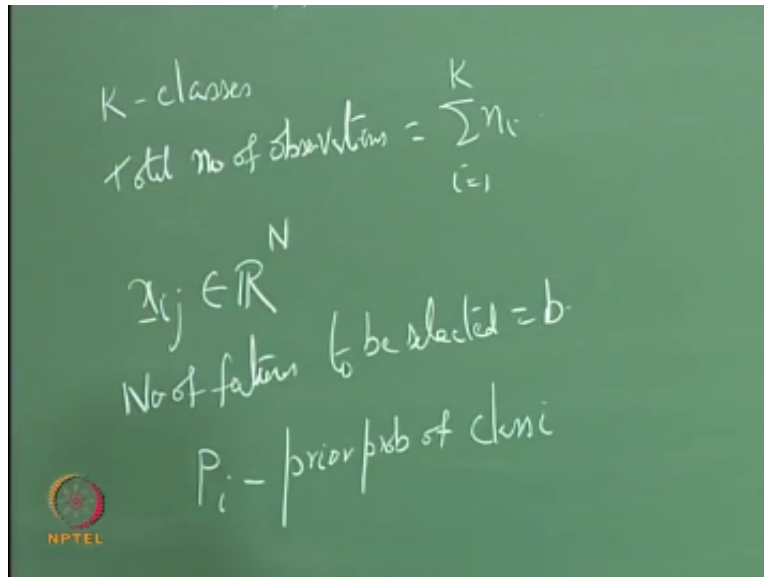 K - classes
Total no of observations = K ∑ i=1 nᵢ
x̲ᵢⱼ ∈ ℝᴺ
No of features to be selected = b.
Pᵢ - prior prob of class i
NPTEL